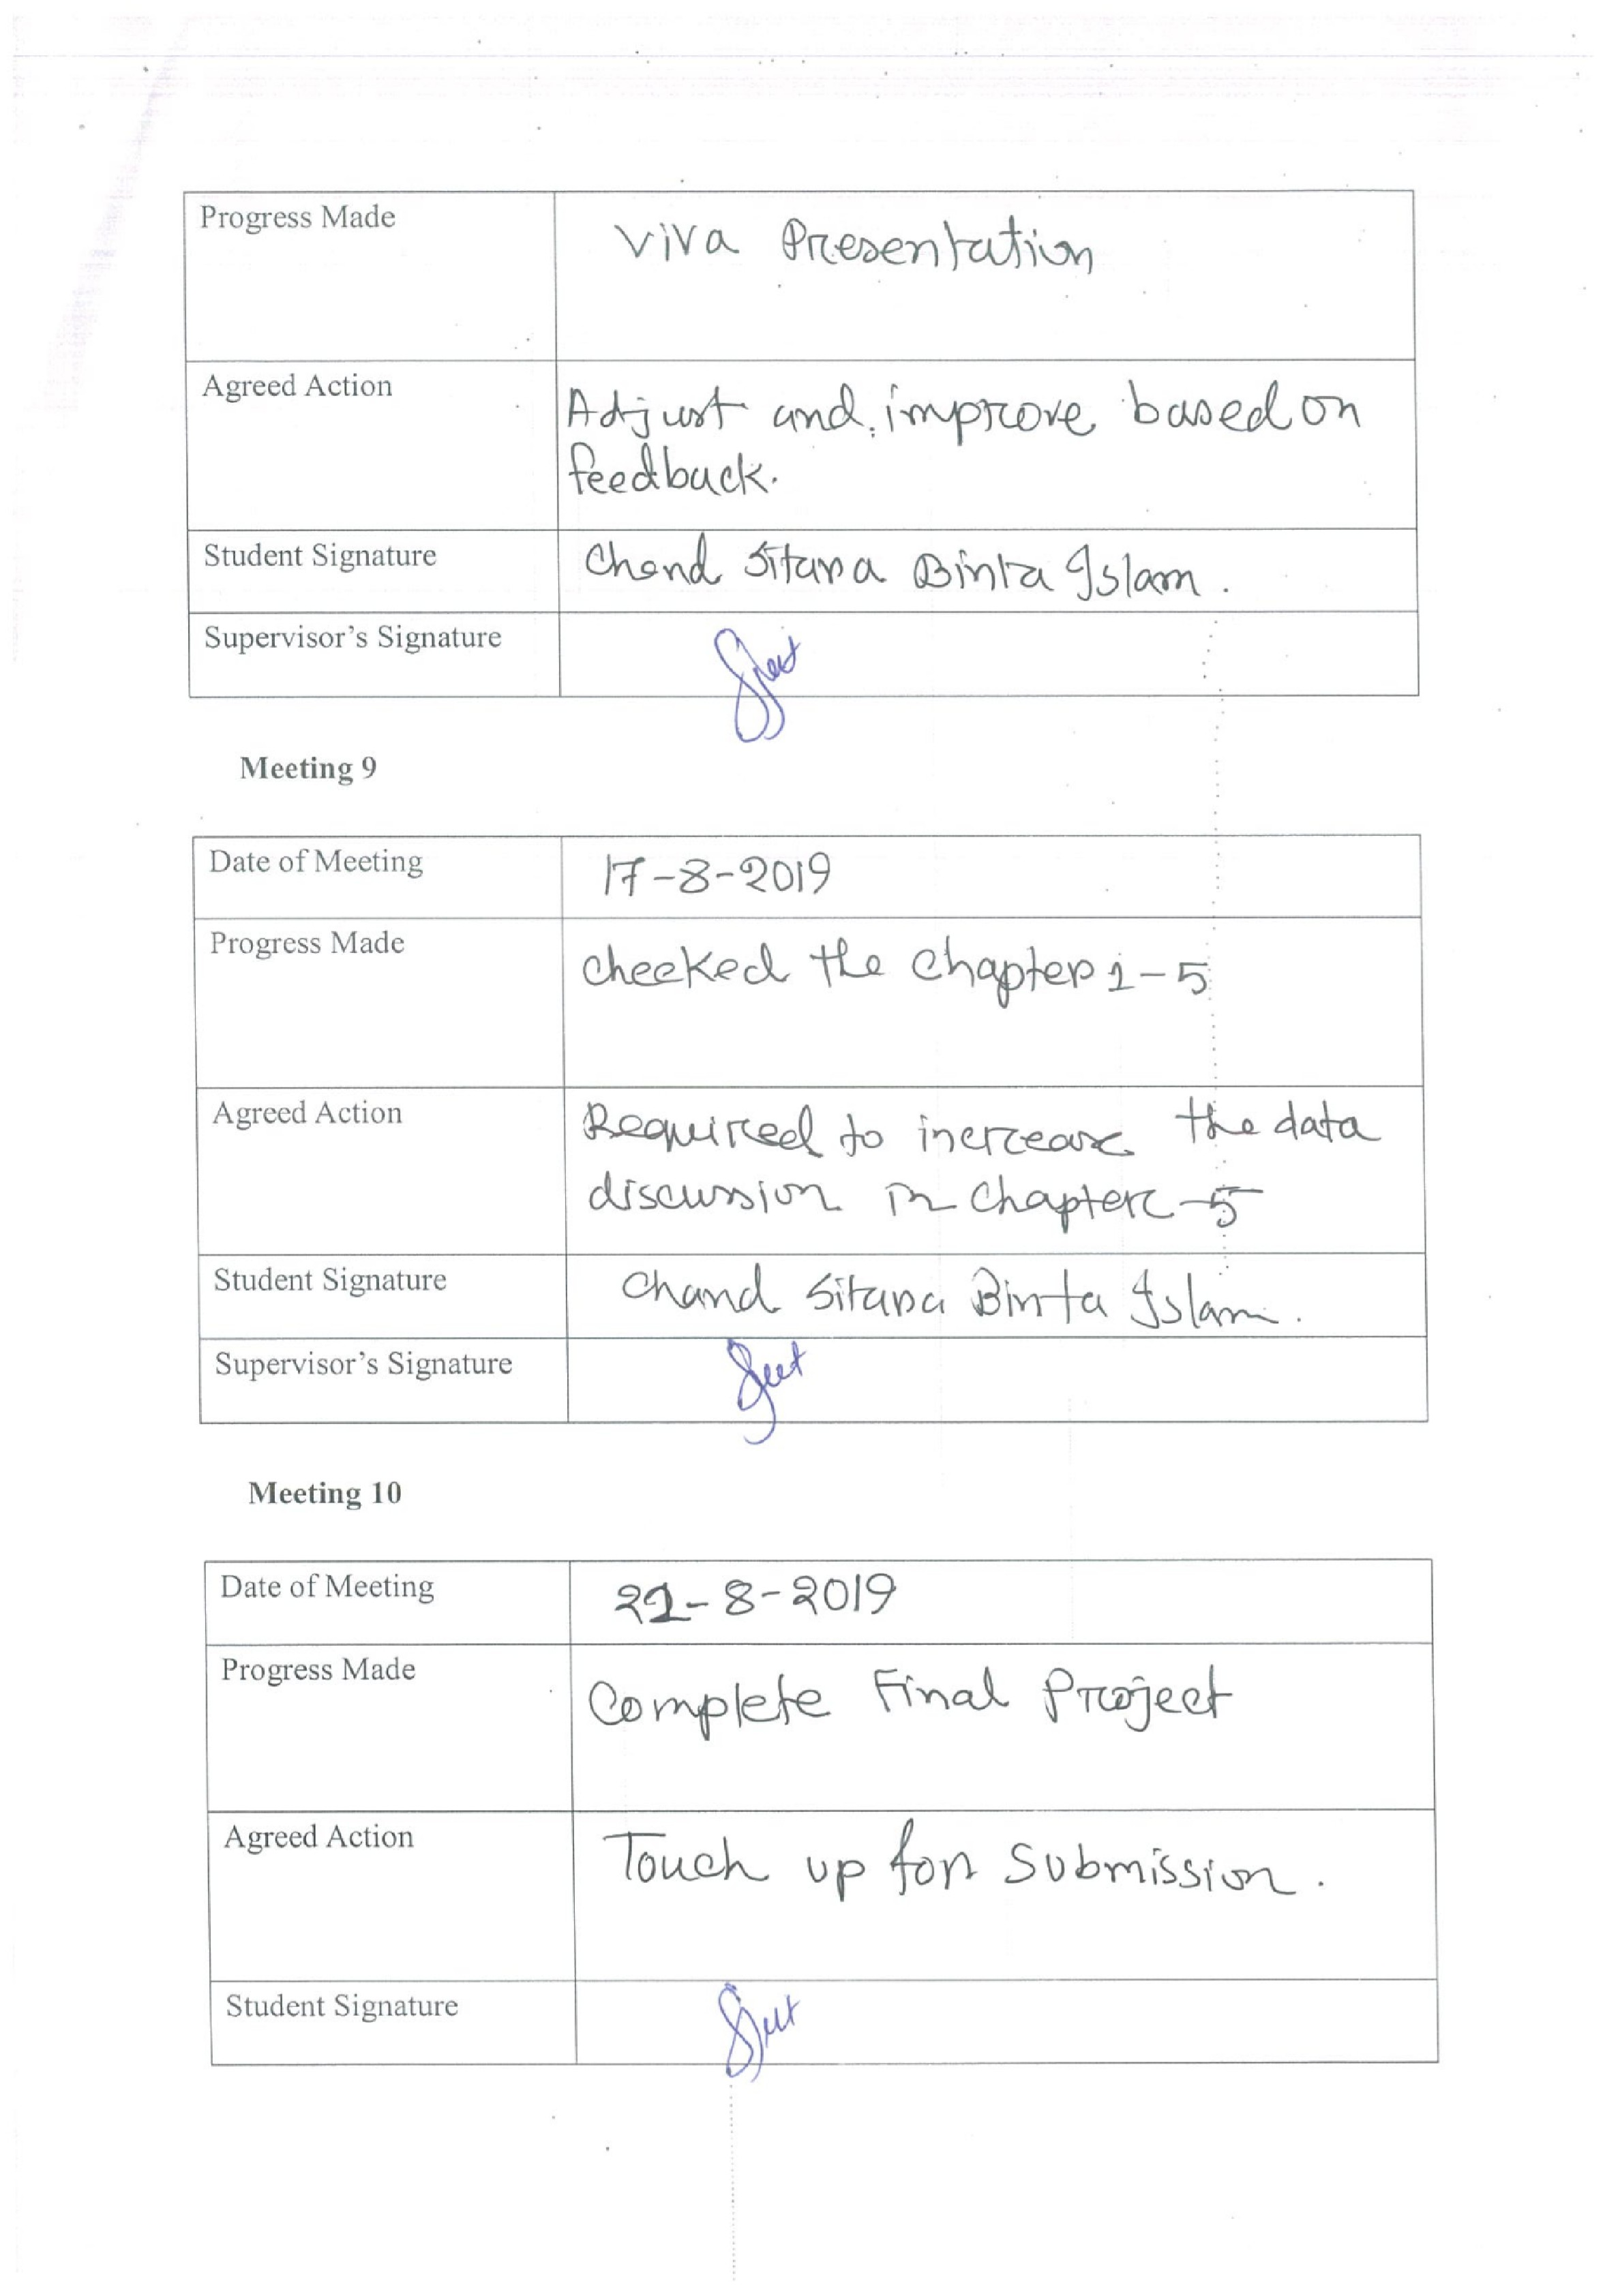 Progress Made
Viva Presentation
Agreed Action
Adjust and improve based on
feedback.
Student Signature
Chand Sitara Binta Islam.
Supervisor's Signature
Meeting 9
Date of Meeting
17-8-2019
Progress Made
checked the chapter 1-5
Agreed Action
Required to increase the data
discussion in chapter-5
Student Signature
Chand Sitara Binta Islam.
Supervisor's Signature
Meeting 10
Date of Meeting
-8-2019
Progress Made
Complete Final Project
Agreed Action
Touch up for Submission.
Student Signature